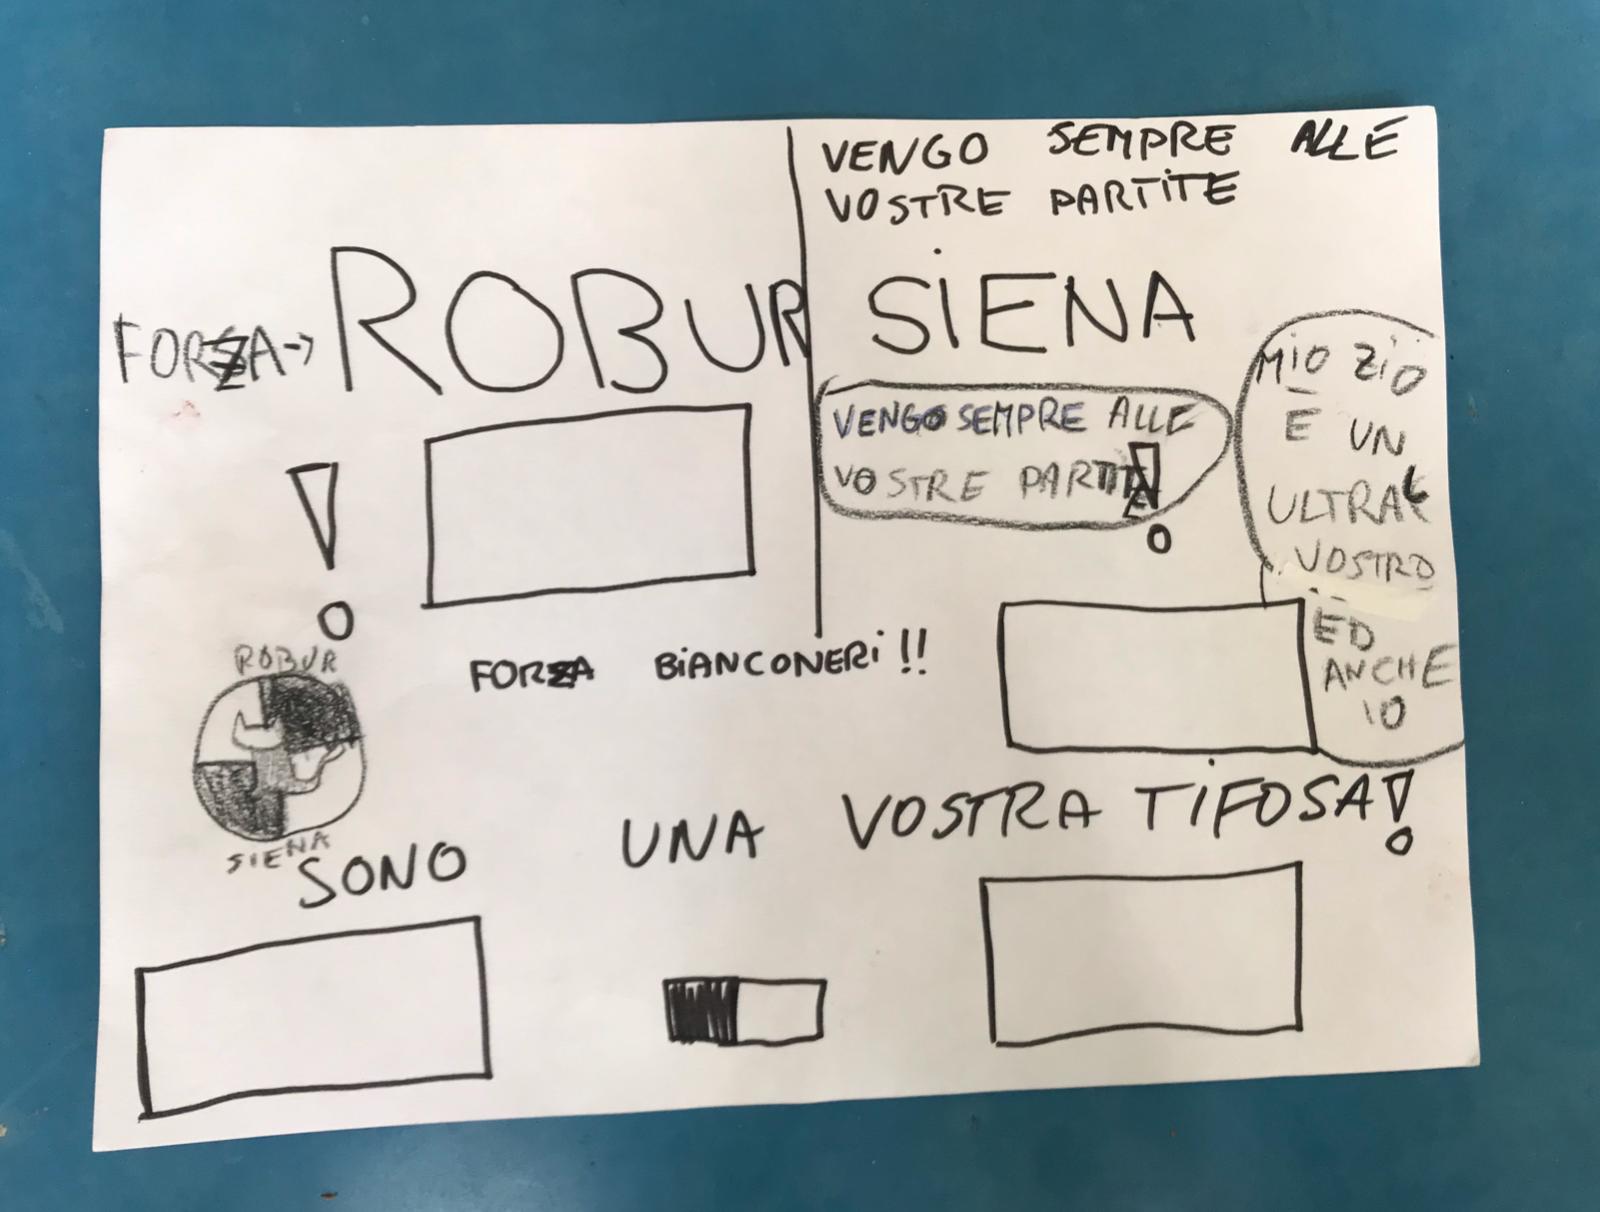 VENGO SEMPRE ALLE
VOSTRE PARTITE
FORZA-> ROBUR SIENA
!
VENGO SEMPRE ALLE
VOSTRE PARTITE!
MIO ZIO
E UN
ULTRA
VOSTRO
ED
ANCHE
IO
FORZA BIANCONERI!!
ROBUR
SIENA
SONO UNA VOSTRA TIFOSA!